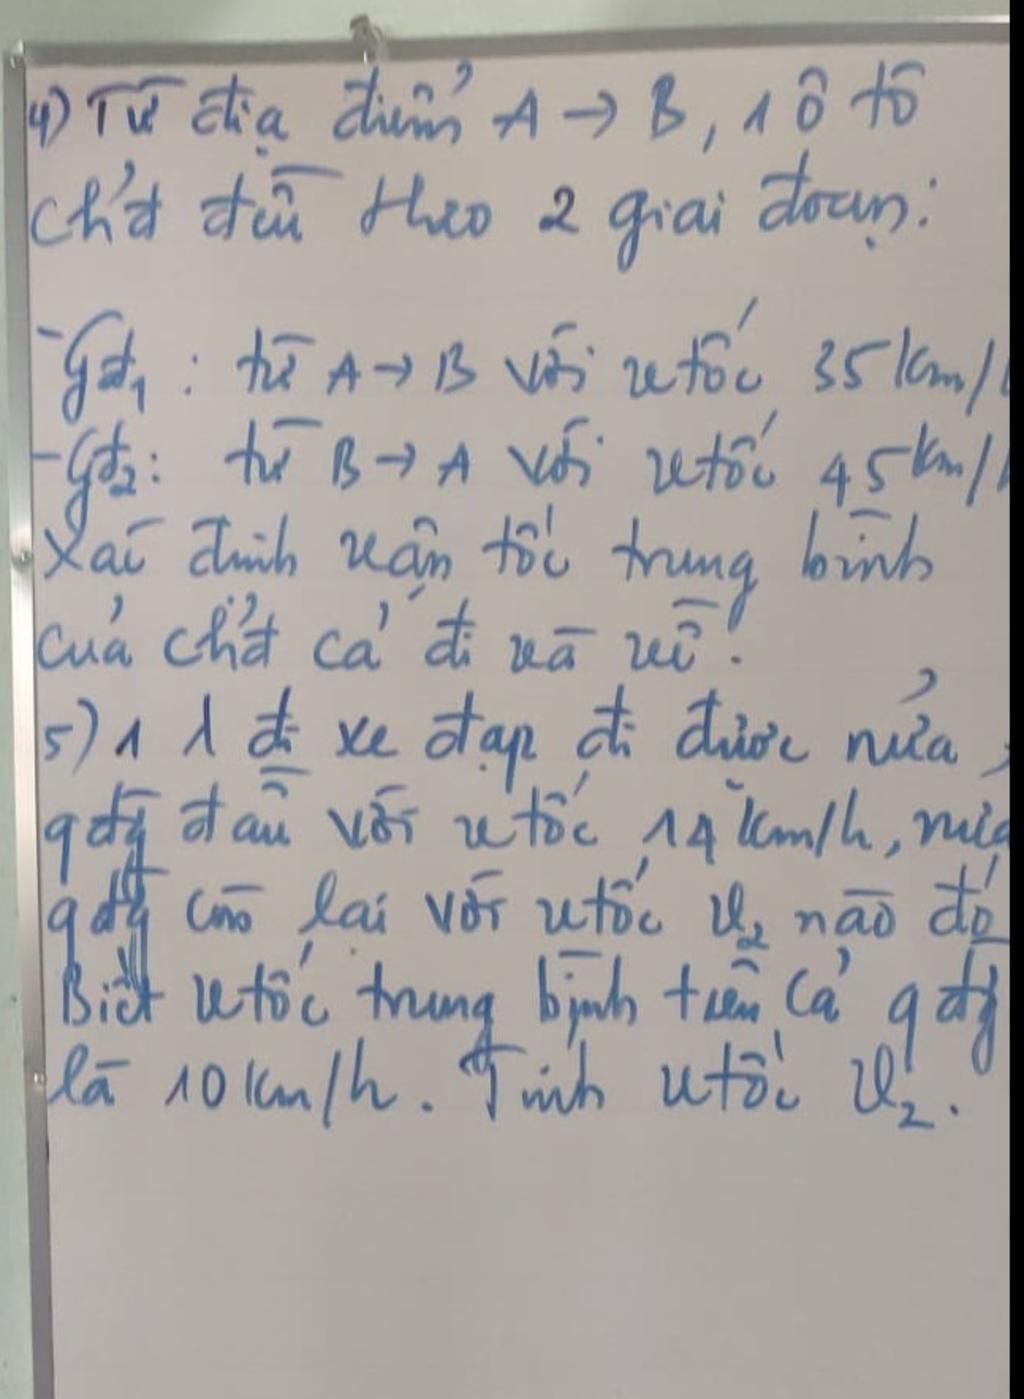 4) Từ địa điểm A → B, 1 ô tô
chđ đều theo 2 giai đoạn:
- Gđ1 : từ A → B với vtốc 35 km/h
- Gđ2 : từ B → A với vtốc 45 km/h
Xác định vận tốc trung bình
của chđ cả đi và về.
5) 1 λ đi xe đạp đi được nửa
qđg đầu với vtốc 14 km/h, nửa
qđg còn lại với vtốc v2 nào đó
Biết vtốc trung bình trên cả qđg
là 10 km/h. Tính vtốc v2.